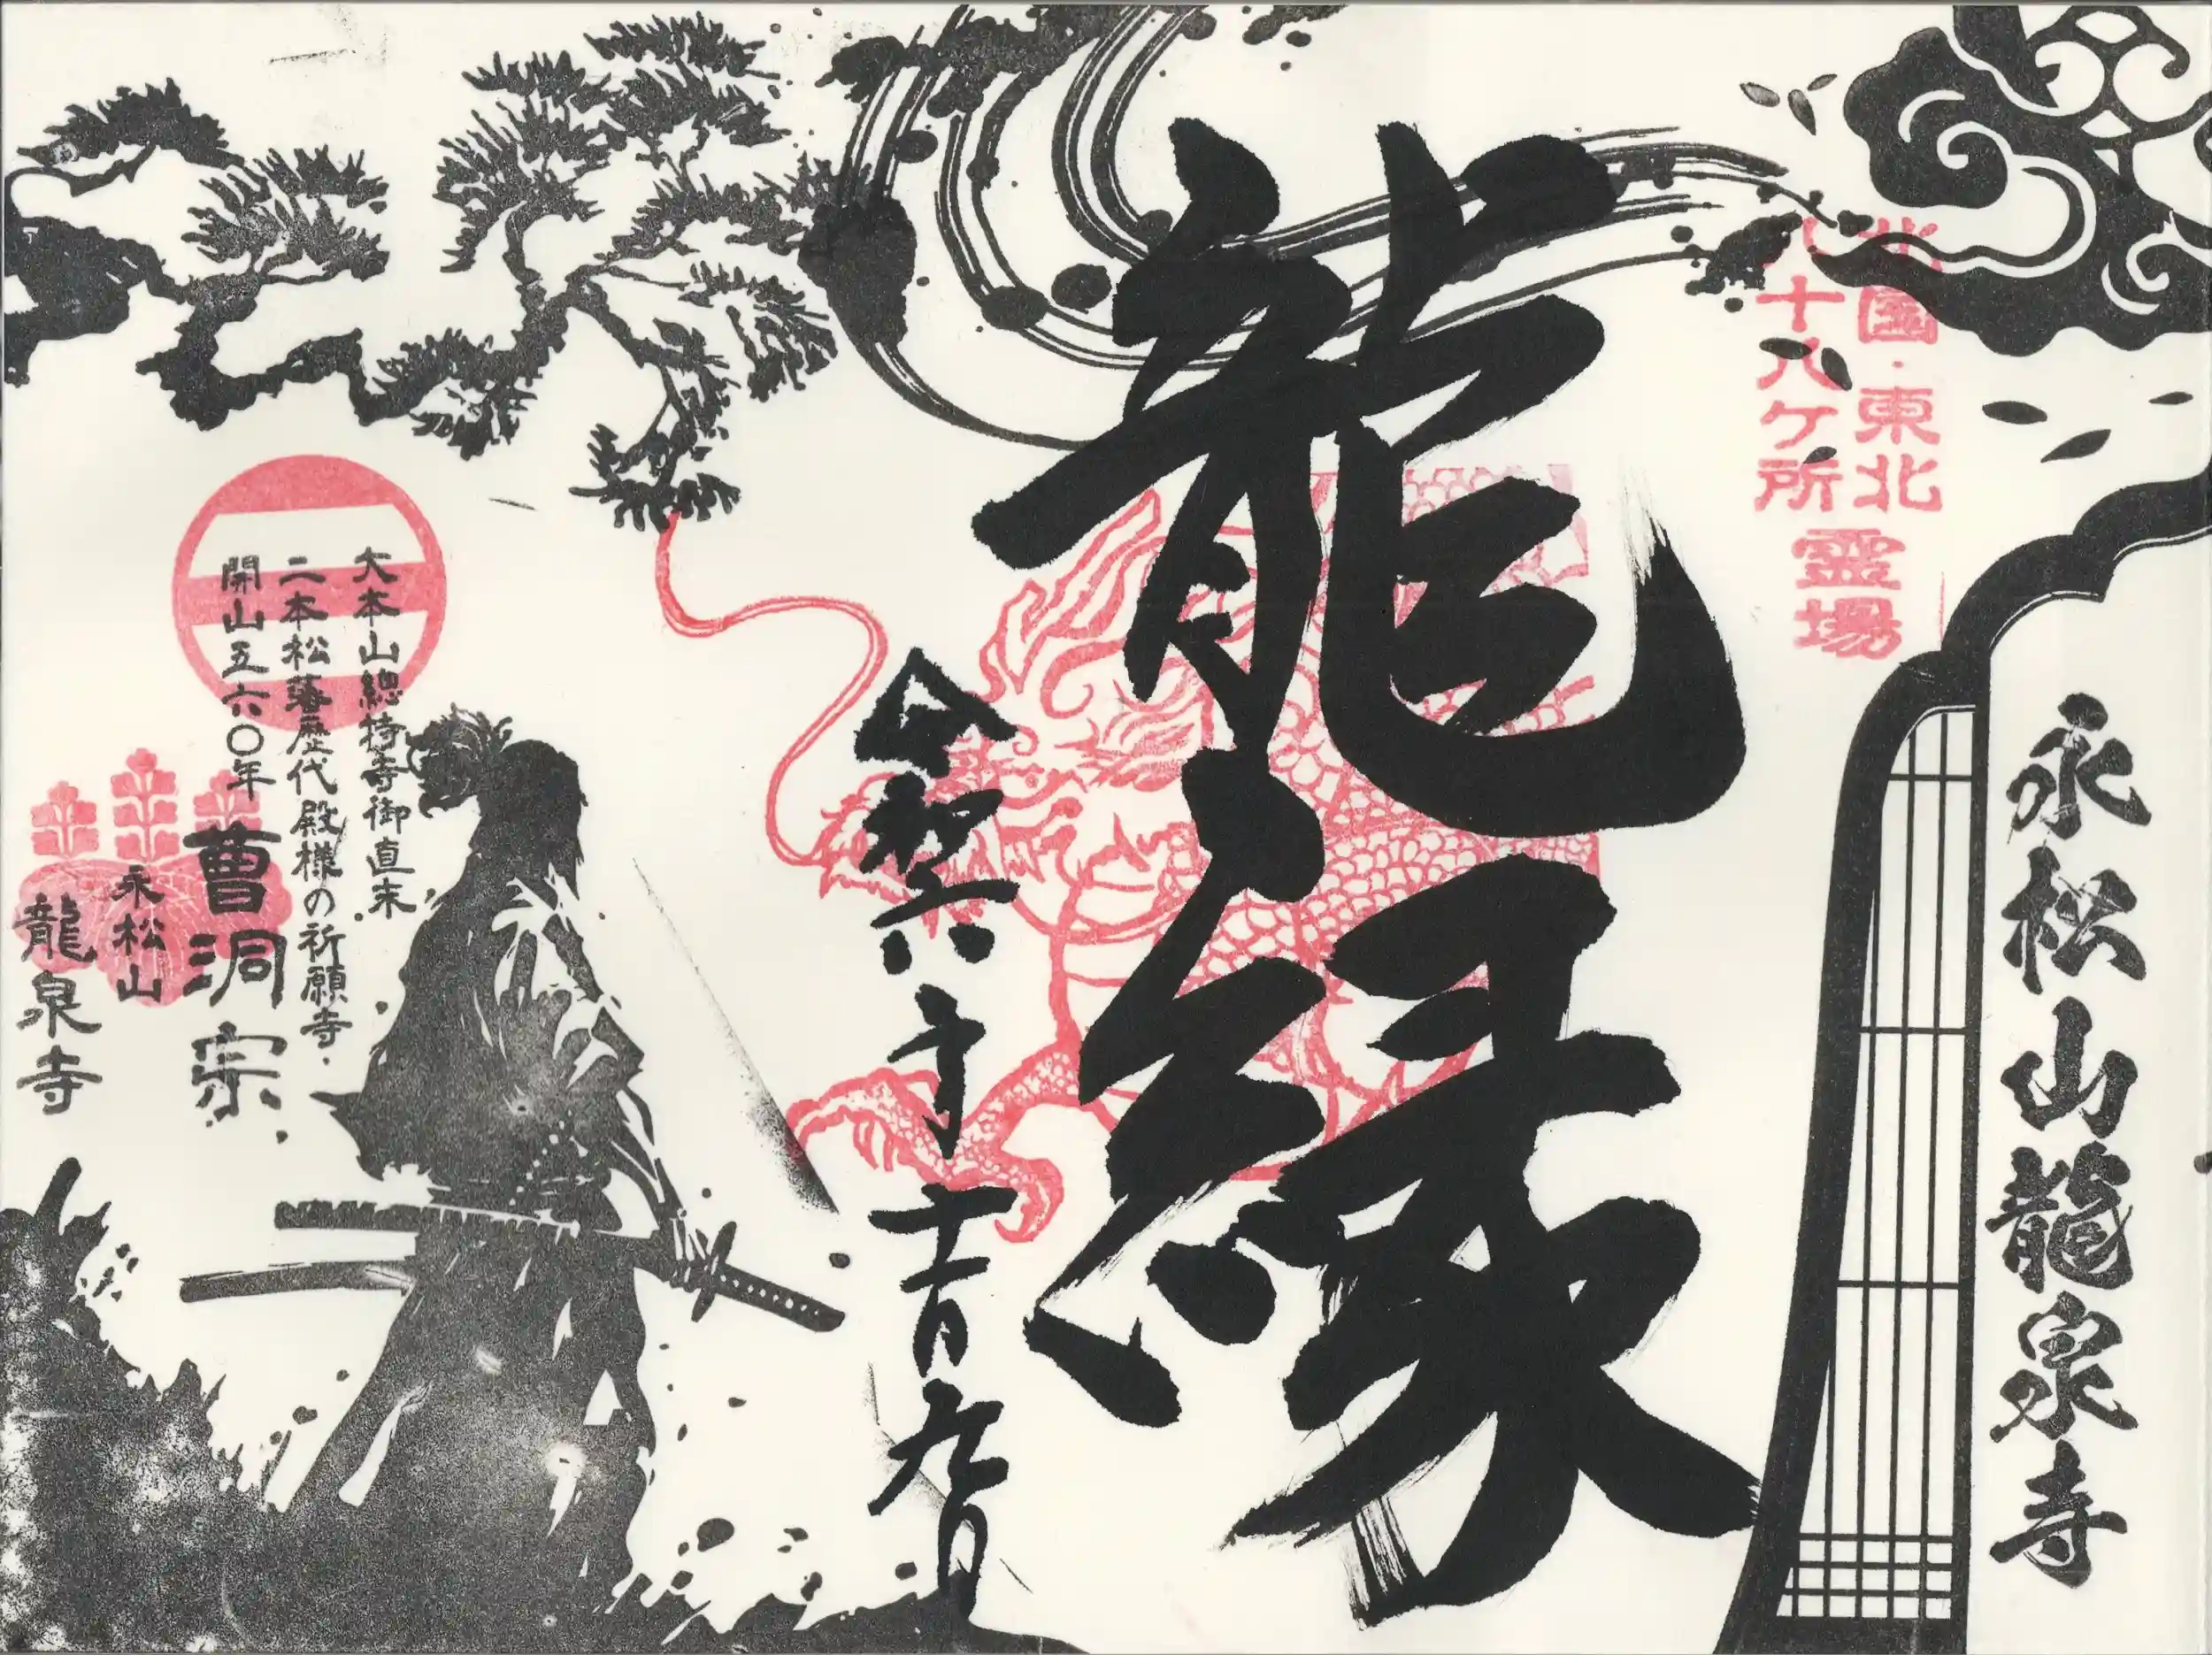 永松山龍泉寺
北国・東北
八十八ケ所
霊場
龍縁
令和六年十一月九日
大本山總持寺御直末
二本松藩歴代殿様の祈願寺・
開山五六〇年
曹洞宗
永松山
龍泉寺